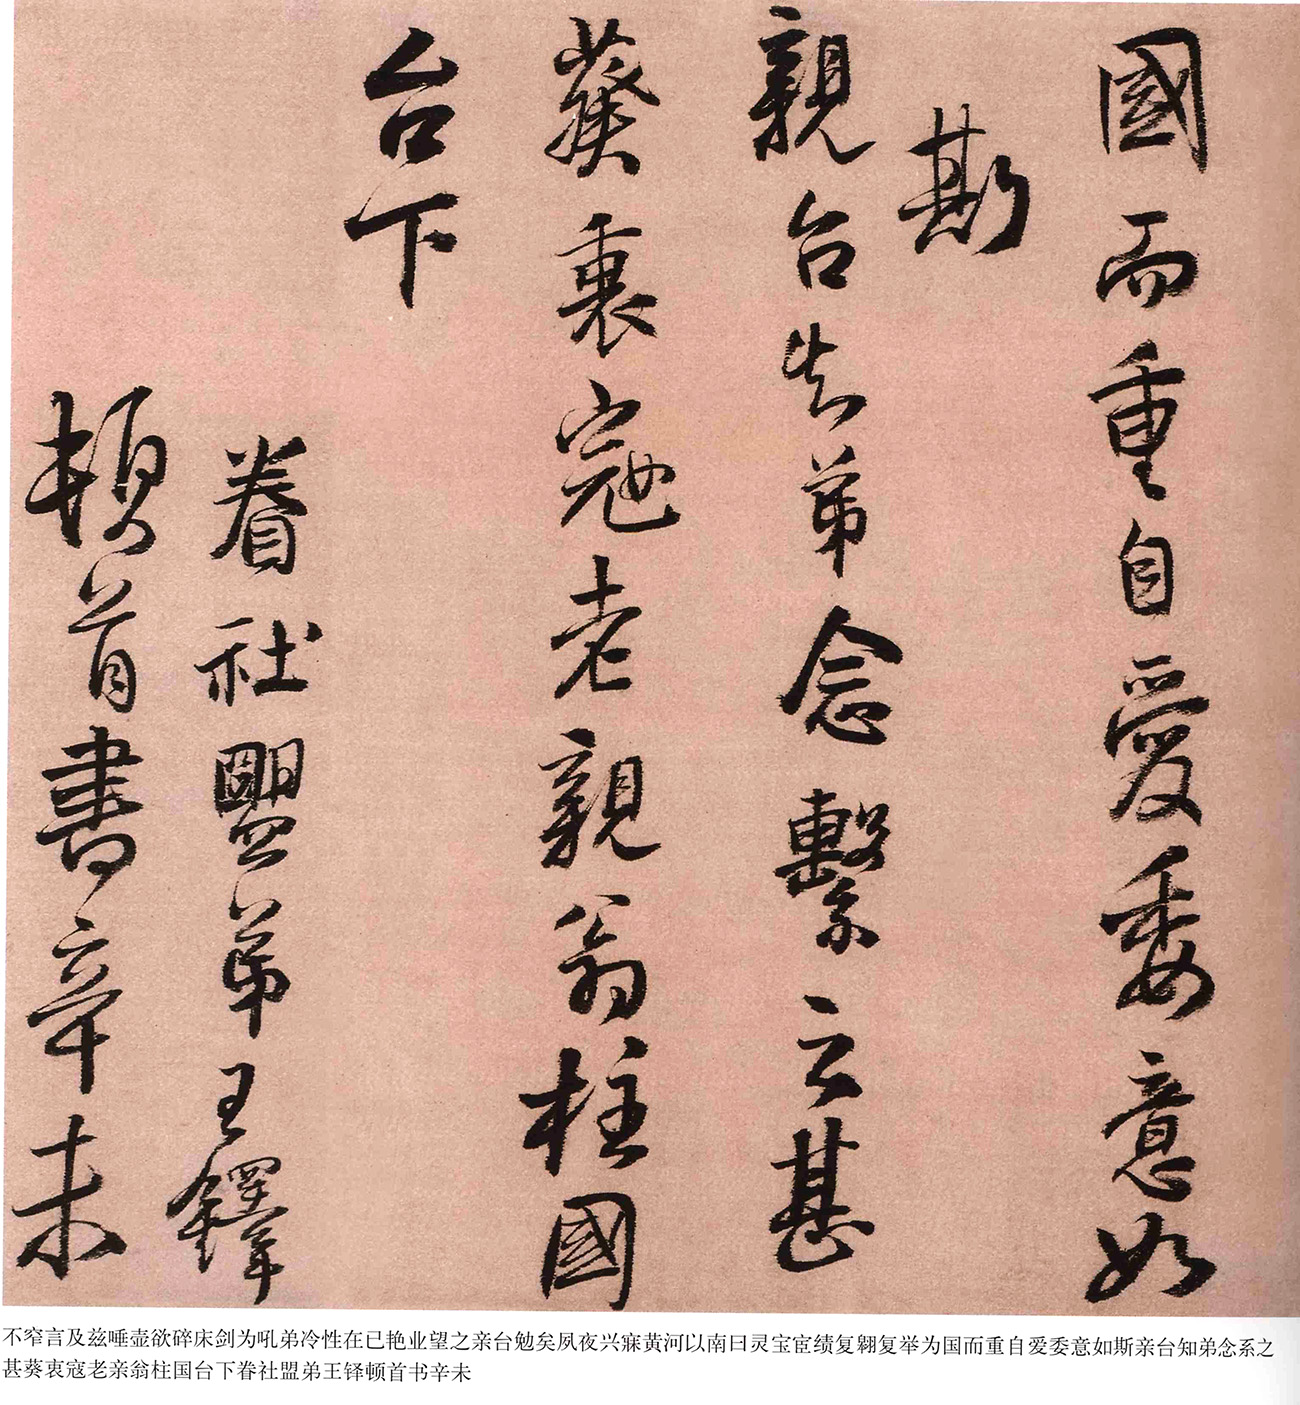 國而重自愛委意如
斯
親台知弟念繫之甚
葵衷寇老親翁柱國
台下
眷社盟弟王鐸
頓首書辛未
不窄言及兹唾壶欲碎床剑为吼弟冷性在已艳业望之亲台勉矣夙夜兴寐黄河以南曰灵宝宦绩复翱复举为国而重自爱委意如斯亲台知弟念系之
甚葵衷寇老亲翁柱国台下眷社盟弟王铎顿首书辛未